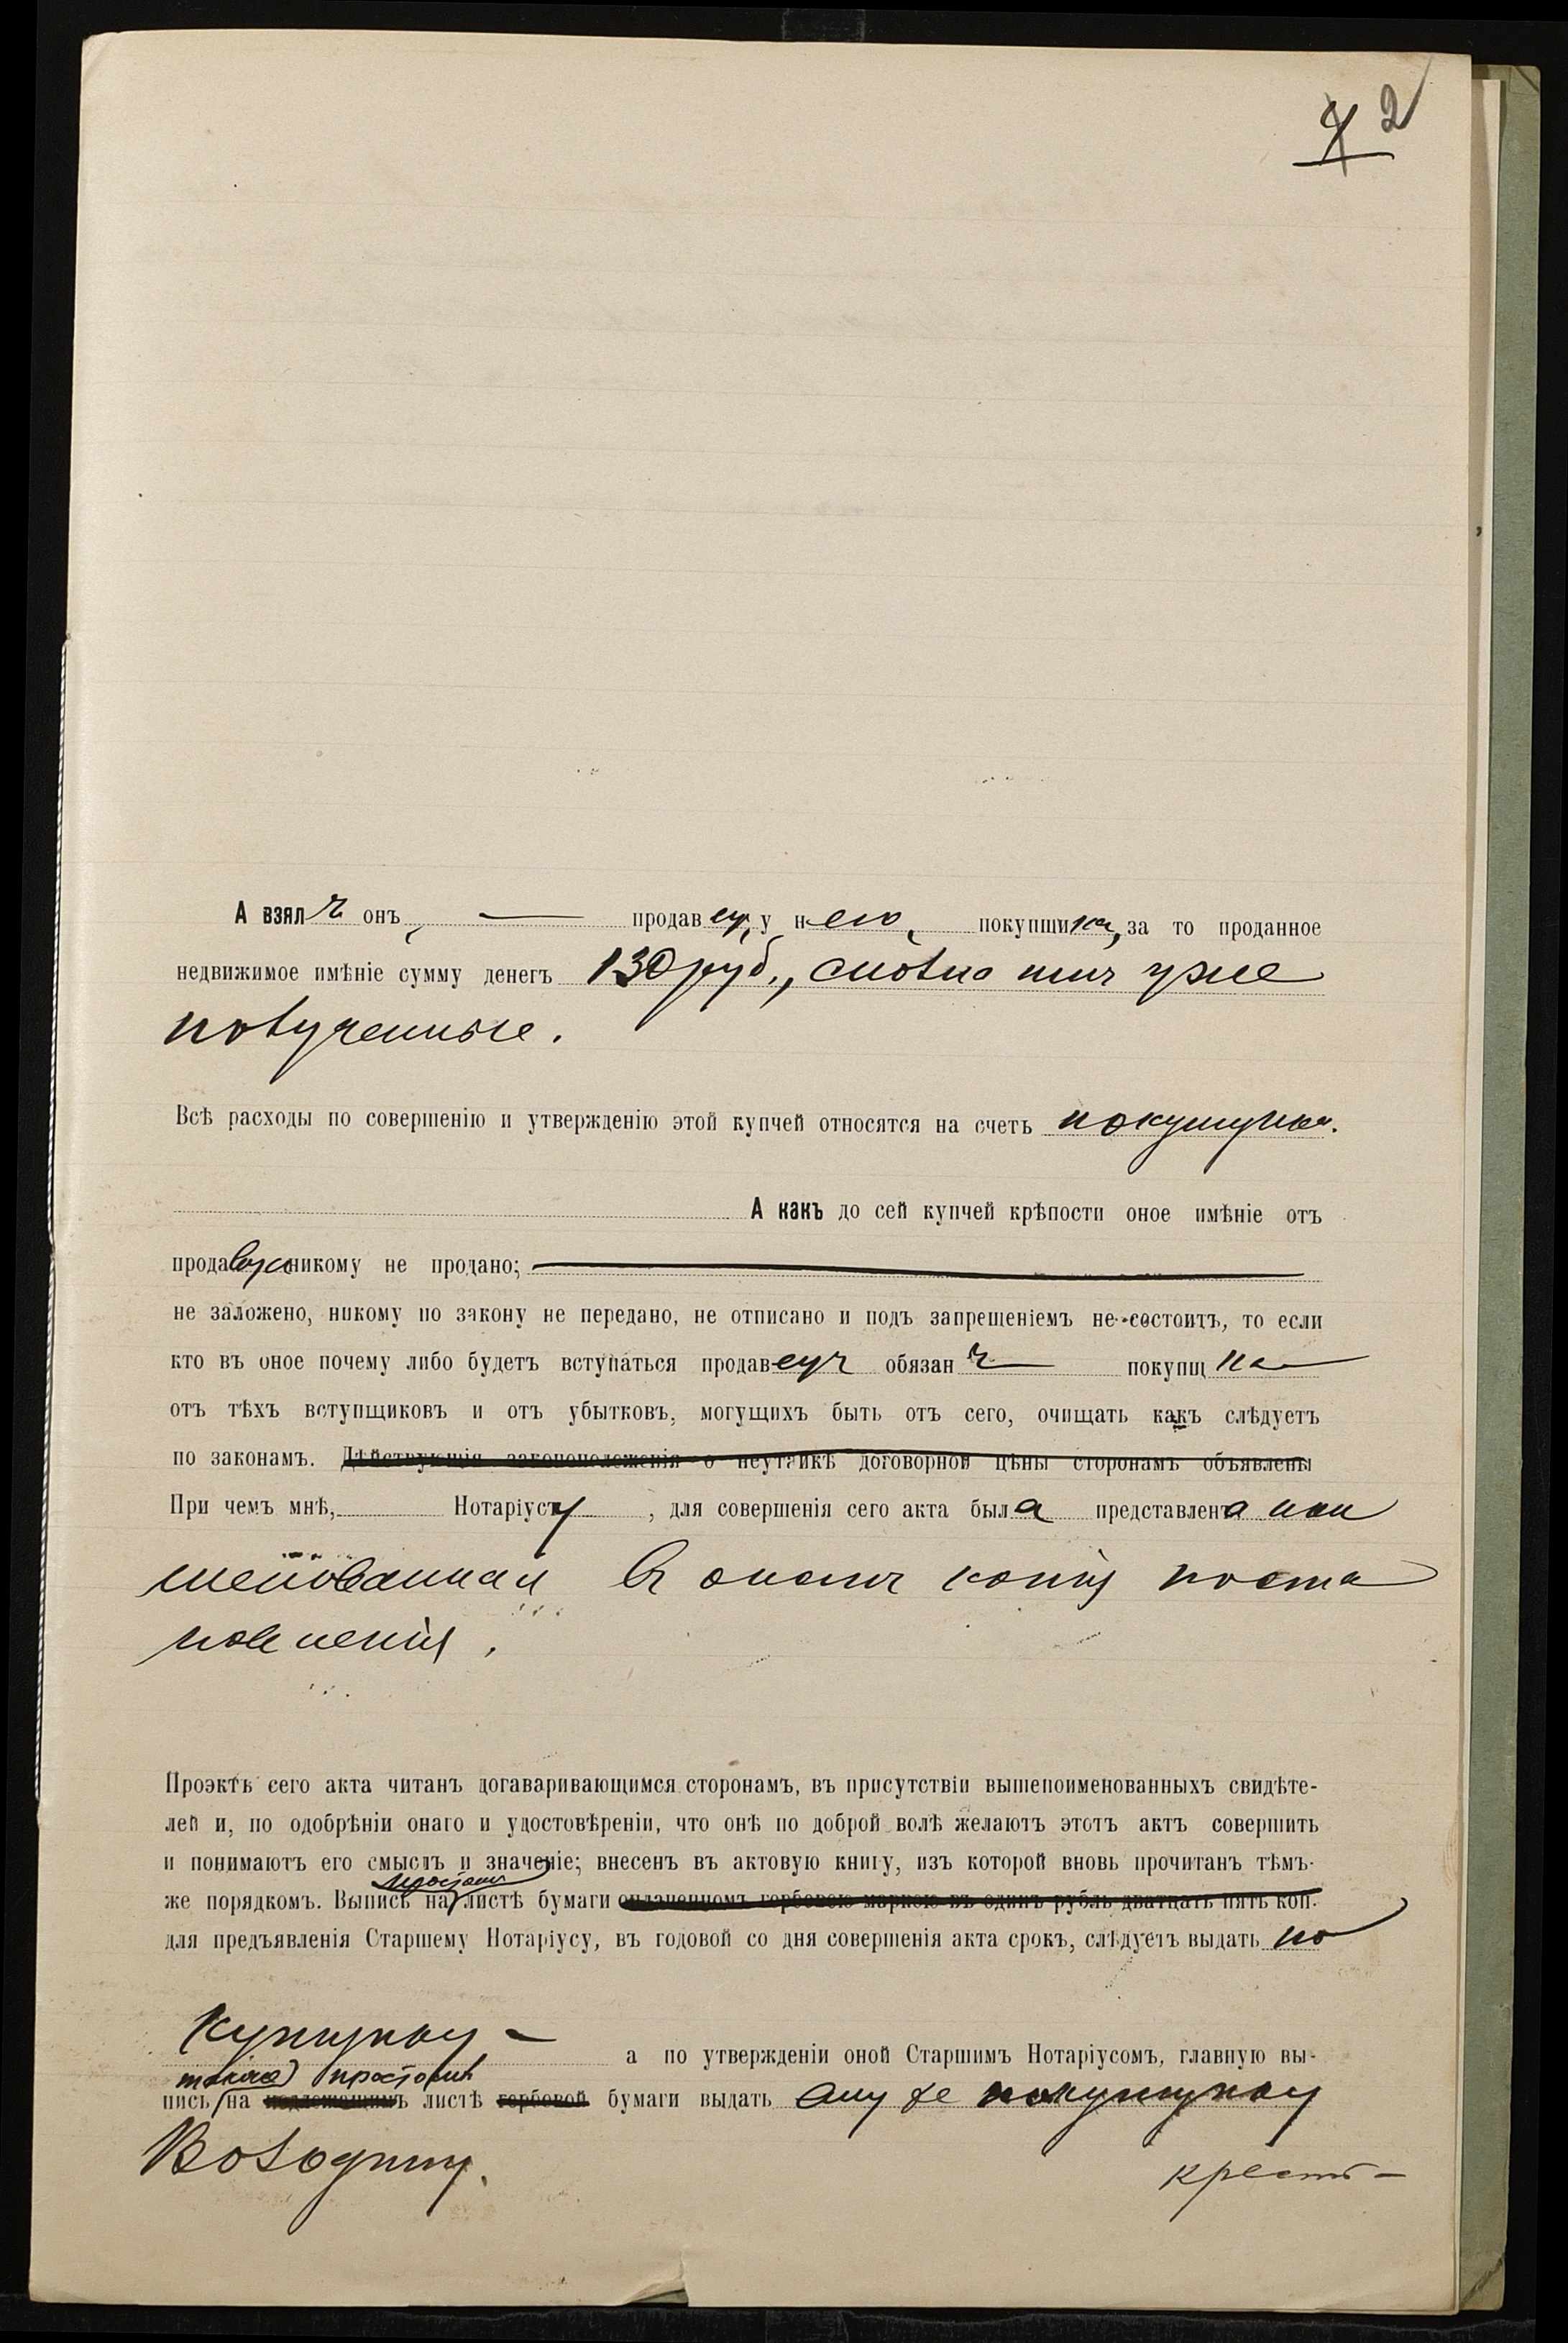 2
А взялъ онъ, — продавецъ, у него, покупщика, за то проданное
недвижимое имѣніе сумму денегъ 130 руб., сполна имъ уже
полученные.
Всѣ расходы по совершенію и утвержденію этой купчей относятся на счетъ покупщика.
А какъ до сей купчей крѣпости оное имѣніе отъ
продавца никому не продано;
не заложено, никому по закону не передано, не отписано и подъ запрещеніемъ не состоитъ, то если
кто въ оное почему либо будетъ вступаться продавецъ обязанъ покупщика
отъ тѣхъ вступщиковъ и отъ убытковъ, могущихъ быть отъ сего, очищать какъ слѣдуетъ
по законамъ. Дѣйствующія законоположенія о неутайкѣ договорной цѣны сторонамъ объявлены
При чемъ мнѣ, Нотаріусу, для совершенія сего акта была представлена пои
менованная въ ономъ копія поста
новленія.
Проэктъ сего акта читанъ договаривающимся сторонамъ, въ присутствіи вышепоименованныхъ свидѣте-
лей и, по одобрѣніи онаго и удостовѣреніи, что онѣ по доброй волѣ желаютъ этотъ актъ совершить
и понимаютъ его смыслъ и значеніе; внесенъ въ актовую книгу, изъ которой вновь прочитанъ тѣмъ-
простомъ
же порядкомъ. Выпись на листѣ бумаги оплаченномъ гербовою маркою въ одинъ рубль двадцать пять коп.
для предъявленія Старшему Нотаріусу, въ годовой со дня совершенія акта срокъ, слѣдуетъ выдать по
купщику — а по утвержденіи оной Старшимъ Нотаріусомъ, главную вы-
также простомъ
пись на надлежащимъ листѣ гербовой бумаги выдать ему же покупщику
Володину.
крест-